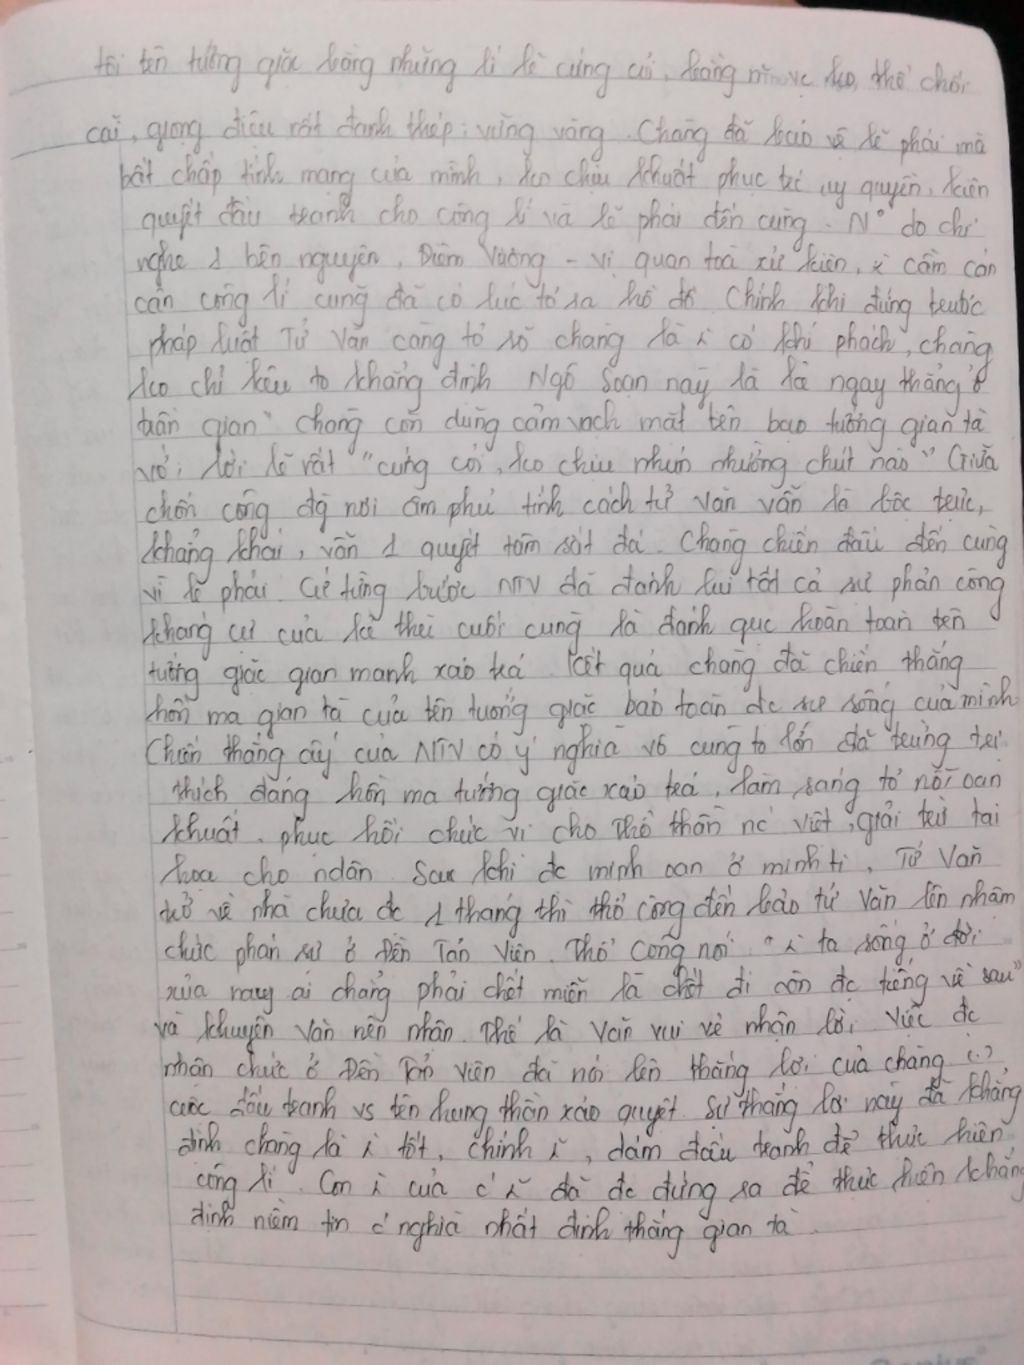 tội tên tướng giặc bằng những lí lẽ cứng cỏi, bằng ko thể chối
cãi, giọng điệu rất đanh thép, vững vàng. Chàng đã bảo vệ lẽ phải mà
bất chấp tính mạng của mình, ko chịu khuất phục trc uy quyền, kiên
quyết đấu tranh cho công lí và lẽ phải đến cùng. do chỉ
nghe 1 bên nguyên, Diêm Vương - vị quan toà xử kiện, cầm cán
cân công lí cũng đã có lúc tỏ ra hồ đồ Chính khi đứng trước
pháp luật Tử Văn càng tỏ rõ chàng là có khí phách, chàng
ko chỉ kêu to khẳng định Ngô Soạn này là kẻ ngay thẳng ở
trần gian" chàng còn dũng cảm vạch mặt tên bạo tướng gian tà
vs lời lẽ rất "cứng cỏi, ko chịu nhún nhường chút nào" Giữa
chốn công nơi âm phủ tính cách tử văn vẫn là bộc trực,
khảng khái, vẫn 1 quyết tâm sắt đá. Chàng chiến đấu đến cùng
vì lẽ phải. Cứ từng bước NTV đã đánh lui tất cả sự phản công
kháng cự của kẻ thù cuối cùng là đánh gục hoàn toàn tên
tướng giặc gian manh xảo trá Kết quả chàng đã chiến thắng
hồn ma gian tà của tên tướng giặc bảo toàn đc sự sống của mình
Chiến thắng ấy của NTV có ý nghĩa vô cùng to lớn đã trừng trị
thích đáng hồn ma tướng giặc xảo trá, làm sáng tỏ nỗi oan
khuất, phục hồi chức vị cho Thổ thần nc việt, giải trừ tai
hoạ cho ndân. Sau khi đc minh oan ở minh ti, Tử Văn
trở về nhà chưa đc 1 tháng thì thổ công đến bảo tử văn lên nhậm
chức phán sự ở đền Tản Viên. Thổ công nói ta sống ở đời
xưa nay ai chẳng phải chết miễn là chết đi còn đc tiếng về sau"
và khuyên Văn nên nhận. Thế là Văn vui vẻ nhận lời. Việc đc
nhận chức ở Đền Tản Viên đã nói lên thắng lợi của chàng
cuộc đấu tranh vs tên hung thần xảo quyệt. Sự thắng lợi này đã khẳng
định chàng là tốt, chính, dám đấu tranh để thực hiện
công lí. Con của đã đc đứng ra để thực hiện khẳng
định niềm tin nghĩa nhất định thắng gian tà.